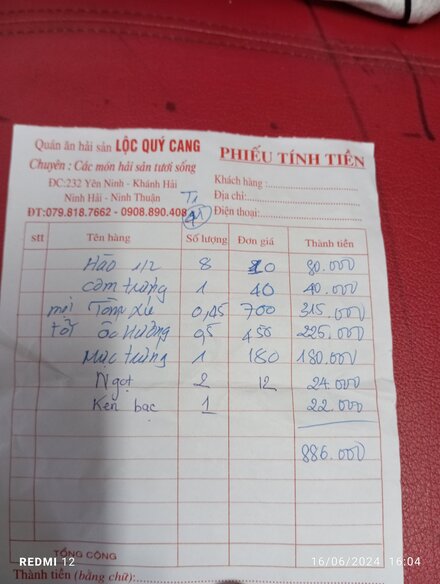 Quán ăn hải sản LỘC QUÝ CANG
Chuyên : Các món hải sản tươi sống
ĐC:232 Yên Ninh - Khánh Hải
Ninh Hải - Ninh Thuận
ĐT:079.818.7662 - 0908.890.408
PHIẾU TÍNH TIỀN
Khách hàng :
Địa chỉ:
Điện thoại:
stt Tên hàng Số lượng Đơn giá Thành tiền
Hào 1/2 8 10 80.000
Cơm trắng 1 40 40.000
mọi Tôm xú 0,45 700 315.000
tỏi ốc Hương 0,5 450 225.000
Mực trứng 1 180 180.000
Ngọt 2 12 24000
Ken bạc 1 22.000
886.000
TỔNG CỘNG
Thành tiền (bằng chữ):
REDMI 12
16/06/2024 16:04